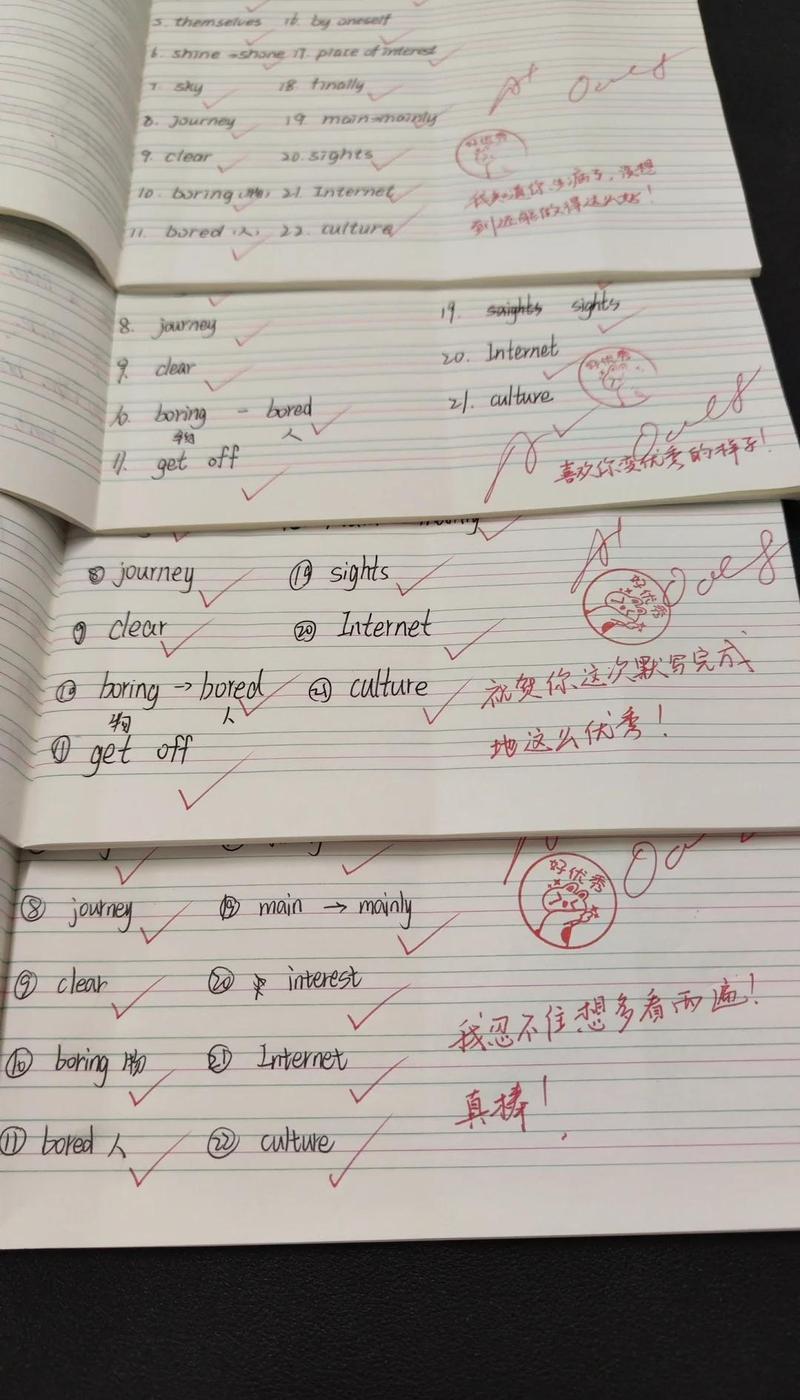 5. themselves 16. by oneself
6. shine → shone 17. place of interest
7. sky 18. finally
8. journey 19. main→mainly
9. clear 20. sights
10. boring (物) 21. Internet
11. bored (人) 22. culture
A+
好优秀
我知道你生病了,没想
到还能做得这么好!
8. journey 19. saights sights
9. clear 20. Internet
10. boring - bored 21. culture
物 人
11. get off
好优秀
喜欢你变优秀的样子!
⑧ journey ⑲ sights
⑨ clear ⑳ Internet
⑩ boring → bored ㉑ culture
物 人
⑪ get off
A+
好优秀
祝贺你这次默写完成
地这么优秀!
⑧ journey ⑲ main → mainly
⑨ clear ⑳ interest
⑩ boring 物 ㉑ Internet
⑪ bored 人 ㉒ culture
好优秀
我忍不住想多看两遍!
真棒!